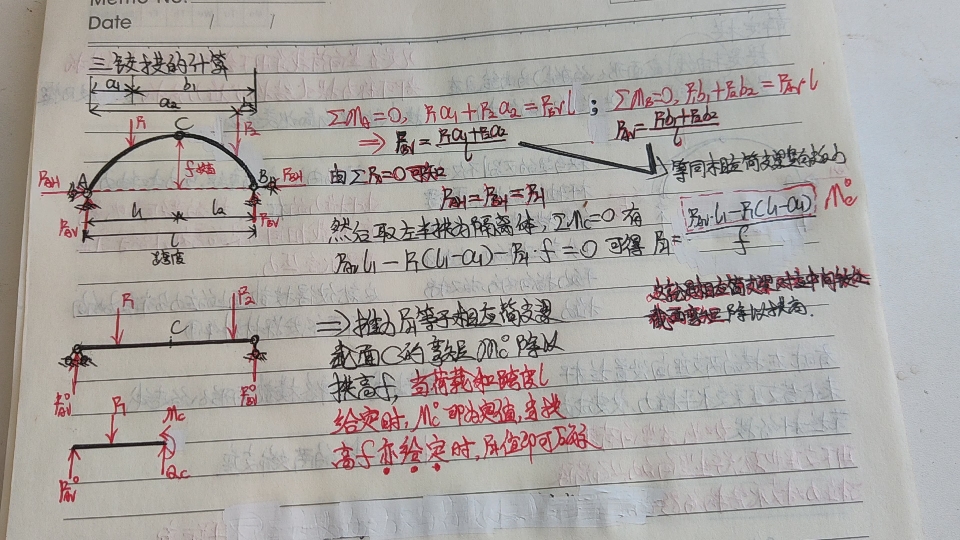 Memo No.
Date / /
三铰拱的计算
a₁ b₁
a₂ b₂
P₁ C P₂
f 拱高
A B
F_AH F_BH
F_AV l₁ l₂ F_BV
l
跨度
ΣM_A=0, P₁a₁+P₂a₂=F_BV·l ; ΣM_B=0, P₁b₁+P₂b₂=F_AV·l
⇒ F_BV=(P₁a₁+P₂a₂)/l F_AV=(P₁b₁+P₂b₂)/l
等同相应简支梁
由ΣF_x=0可知
F_AH=F_BH=F_H
然后取左半拱为隔离体, ΣM_C=0 有
F_AV·l₁-P₁(l₁-a₁)-F_H·f=0 可得 F_H=(F_AV·l₁-P₁(l₁-a₁))/f M_C⁰
P₁ C P₂
F_AV⁰ F_BV⁰
⇒推力F_H等于相应简支梁
截面C的弯矩M_C⁰除以
拱高f, 当荷载和跨度l
给定时, M_C⁰即为定值, 当拱
高f亦给定时, F_H值即可
除以拱高.
P₁ M_C
F_AV⁰ Q_C